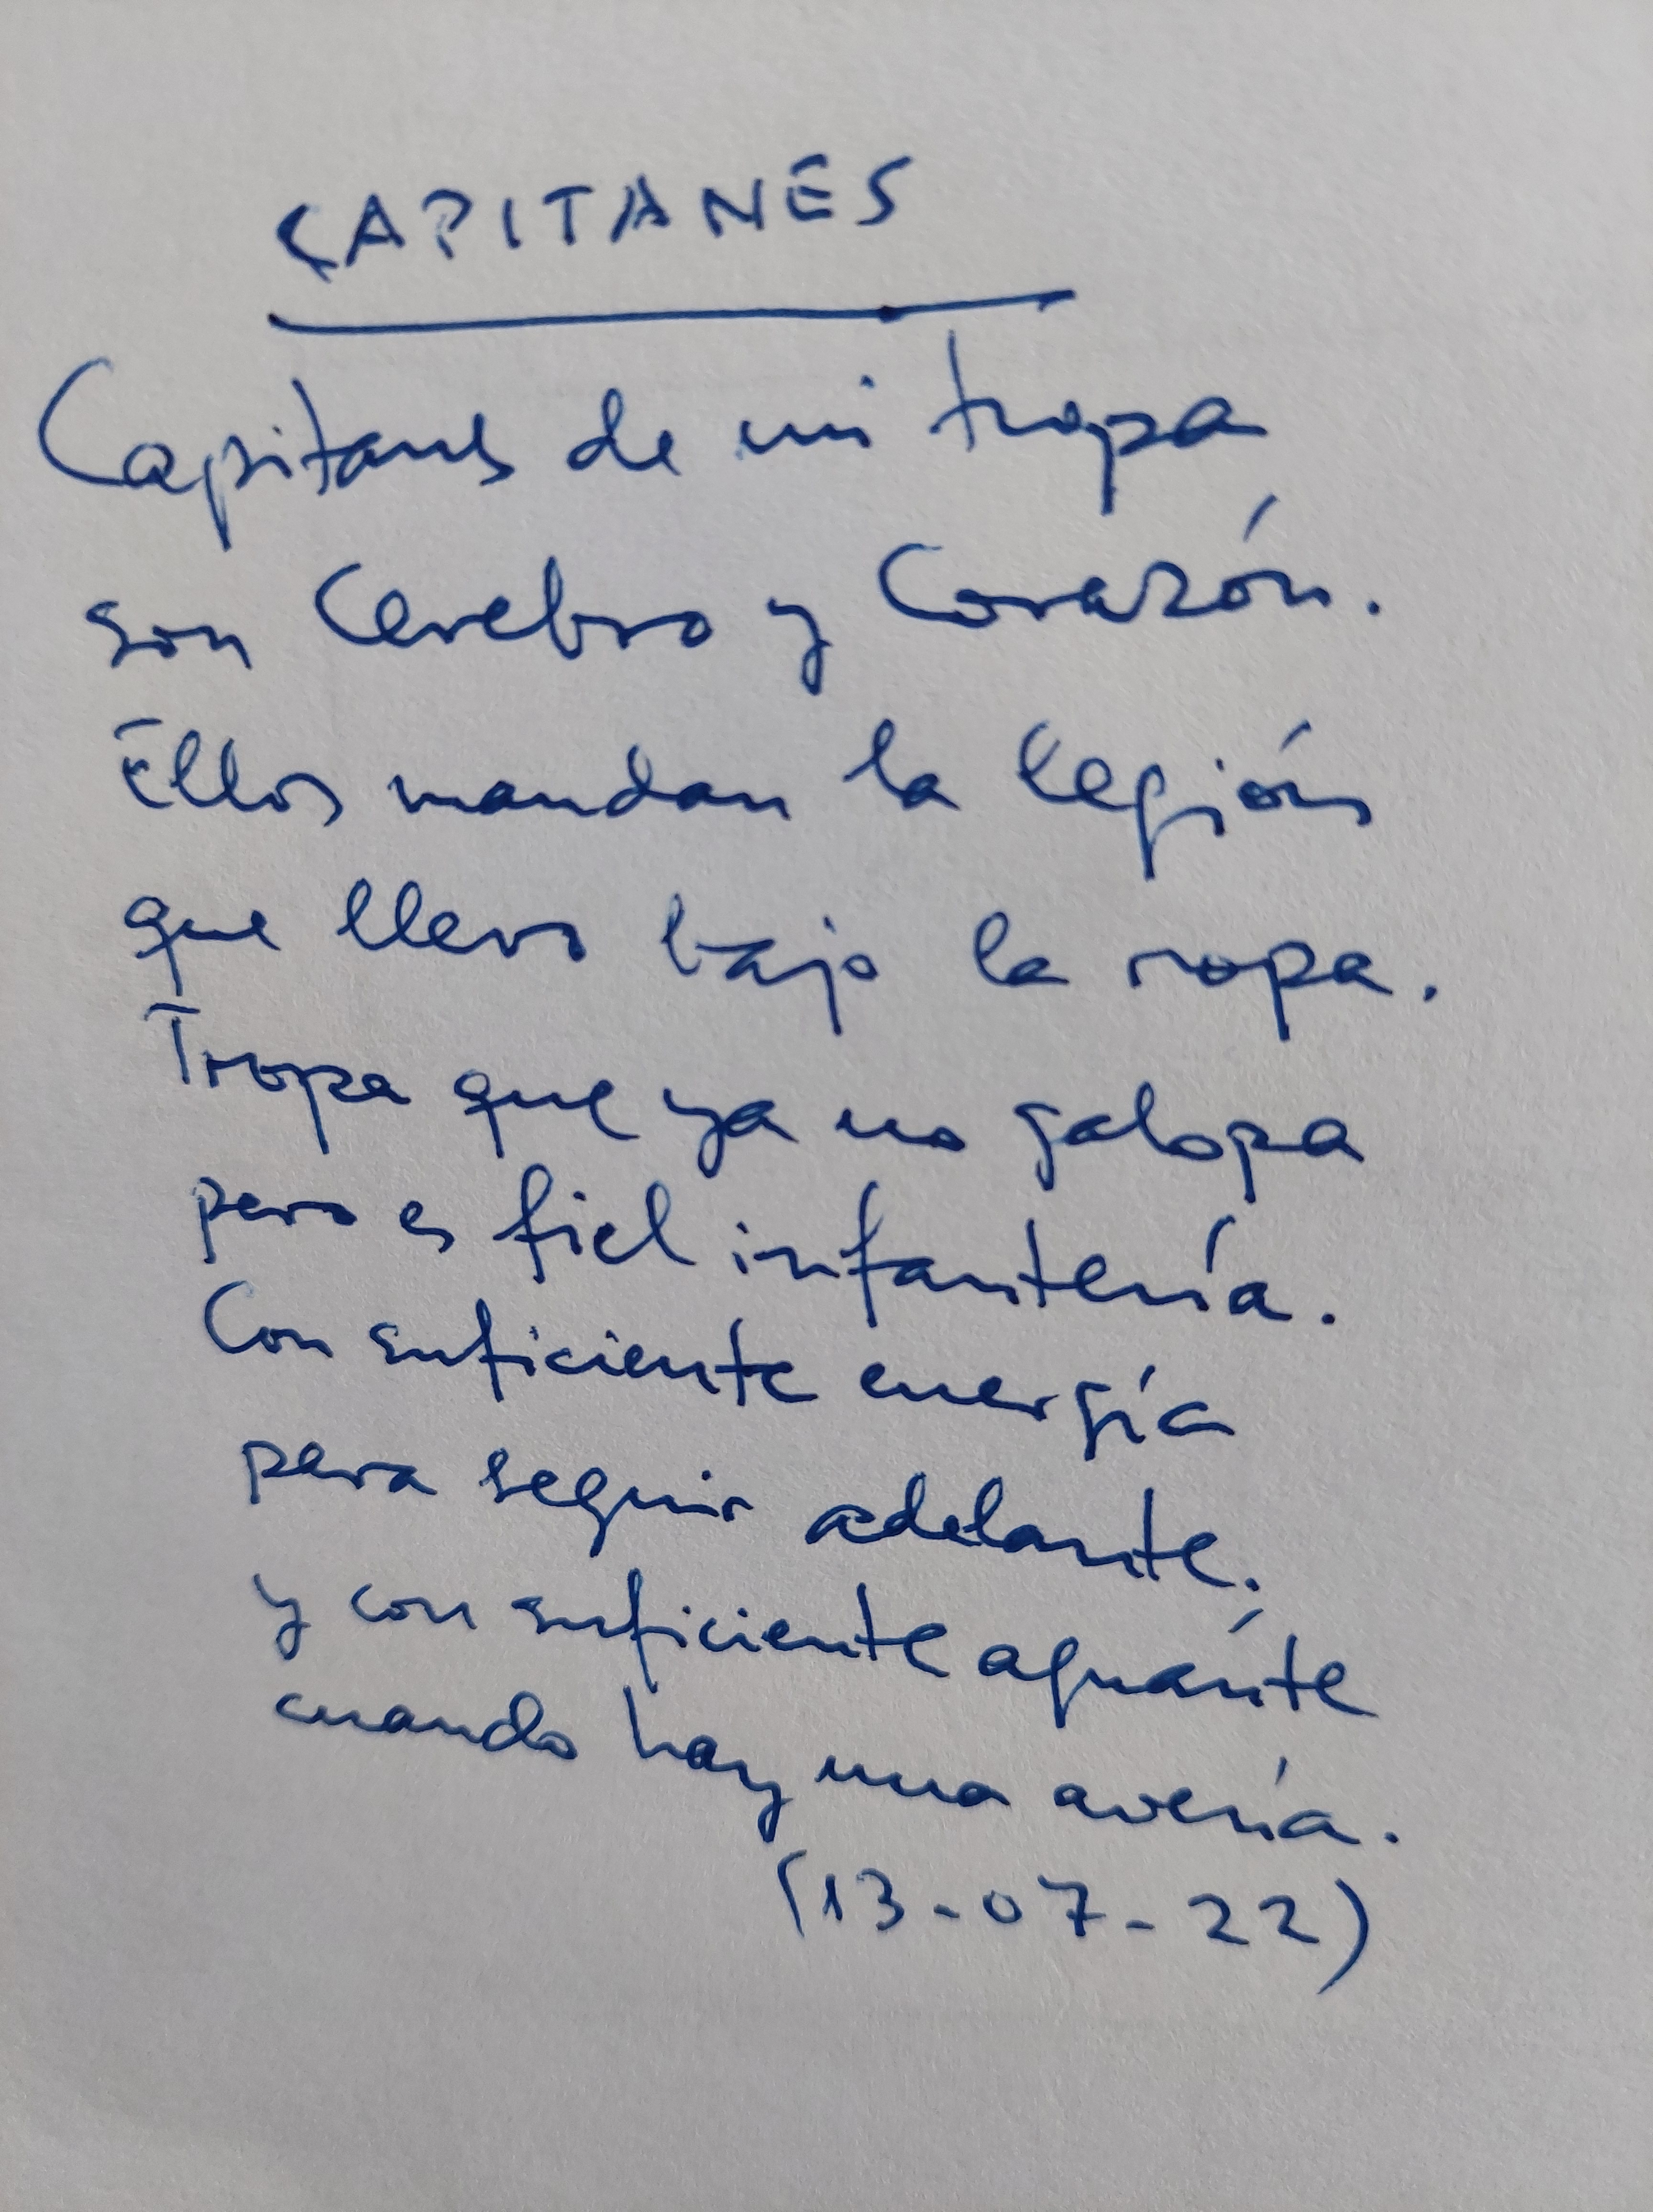 CAPITANES
Capitanes de mi tropa
son Cerebro y Corazón.
Ellos mandan la legión
que llevo bajo la ropa.
Tropa que ya no galopa
pero es fiel infantería.
Con suficiente energía
para seguir adelante;
y con suficiente aguante
cuando hay una avería.
(13-07-22)